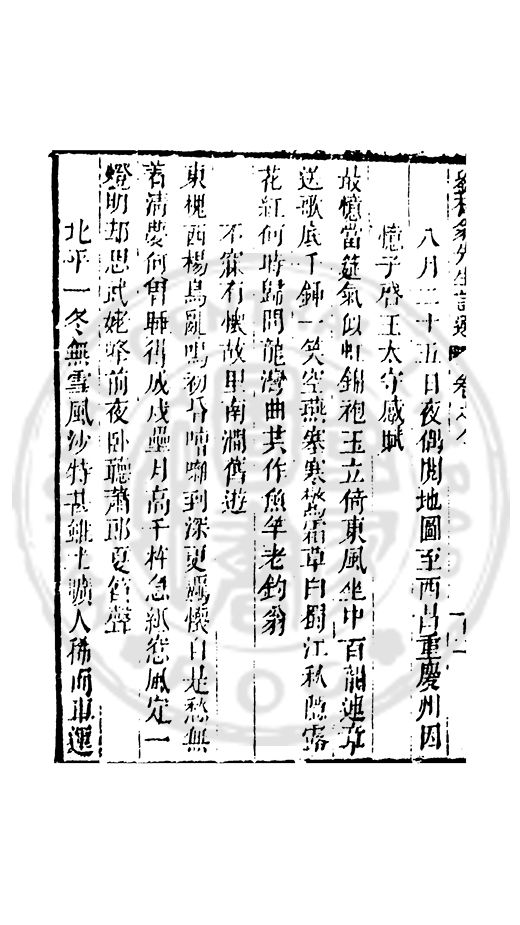 八月二十五日夜偶閱地圖至西昌重慶州因
憶子啓王太守感賦
故憶當筵氣似虹錦袍玉立倚東風坐中百韻連章
送歌底千鍾一笑空燕塞寒鶯霜草白蜀江秋隱露
花紅何時歸問龍灣曲共作魚竿老釣翁
不寐有懷故里南澗舊遊
東槐西楊鳥亂鳴初昏啃啾到深更羈懷自是愁無
着清慶何曾睡得成戍壘月高千柝急紙窓風定一
燈明却思武姥峰前夜臥聽蕭郎夏笛聲
北平一冬無雪風沙特甚雖土曠人稀而車運